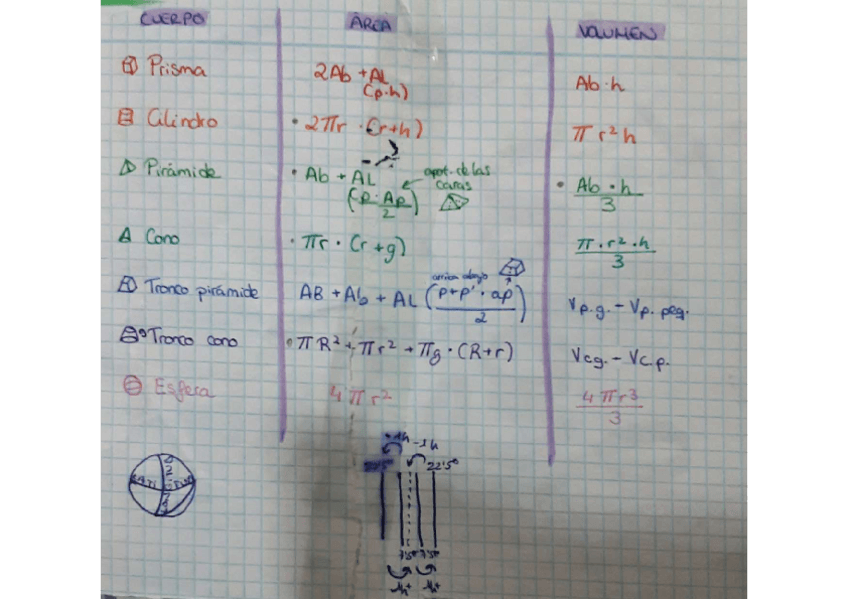 CUERPO ÁREA VOLUMEN
Prisma 2Ab + AL (p·h) Ab·h
Cilindro · 2πr · (r+h) πr²h
Pirámide · Ab + AL (p·Ap)/2 apot. de las caras · Ab·h/3
Cono · πr · (r+g) π·r²·h/3
Tronco pirámide AB + Ab + AL (p+p'·ap)/2 arriba abajo Vp.g. - Vp. peq.
Tronco cono · πR² + πr² + πg · (R+r) Vcg. - Vc.p.
Esfera 4πr² 4πr³/3
-1h
22'5°
7'5° 7'5°